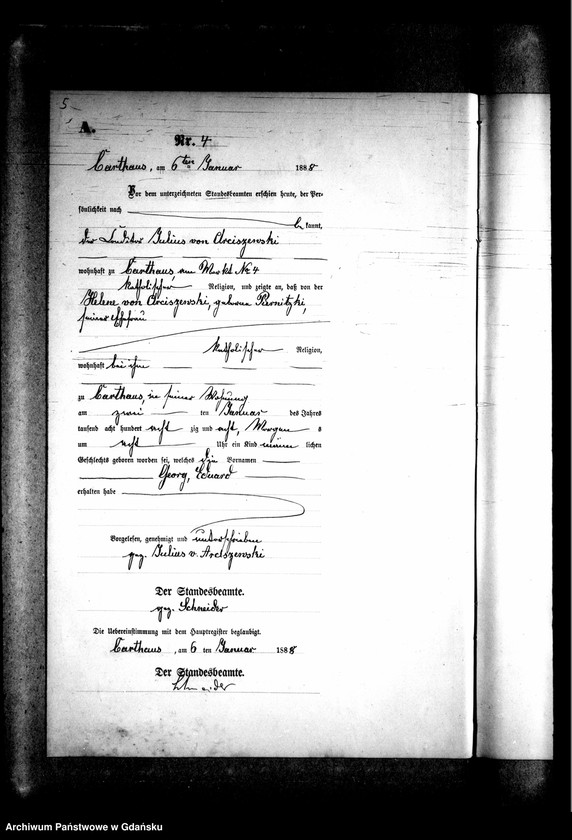 5
A.
Nr. 4
Carthaus, am 6ten Januar 1888
Vor dem unterzeichneten Standesbeamten erschien heute, der Per-
sönlichkeit nach
be kannt,
der Konditor Julius von Arciszewski
wohnhaft zu Carthaus, am Markt No 4
katholischer Religion, und zeigte an, daß von der
Helene von Arciszewski, geborene Pernitzki,
seiner Ehefrau
katholischer Religion,
wohnhaft bei ihm
zu Carthaus, in seiner Wohnung
am zwei ten Januar des Jahres
tausend acht hundert acht zig und acht, Morgen s
um acht Uhr ein Kind männ lichen
Geschlechts geboren worden sei, welches die Vornamen
Georg, Eduard
erhalten habe
Vorgelesen, genehmigt und unterschrieben
gez. Julius v. Arciszewski
Der Standesbeamte.
gez. Schneider
Die Uebereinstimmung mit dem Hauptregister beglaubigt.
Carthaus, am 6 ten Januar 1888
Der Standesbeamte.
Schneider
Archiwum Państwowe w Gdańsku